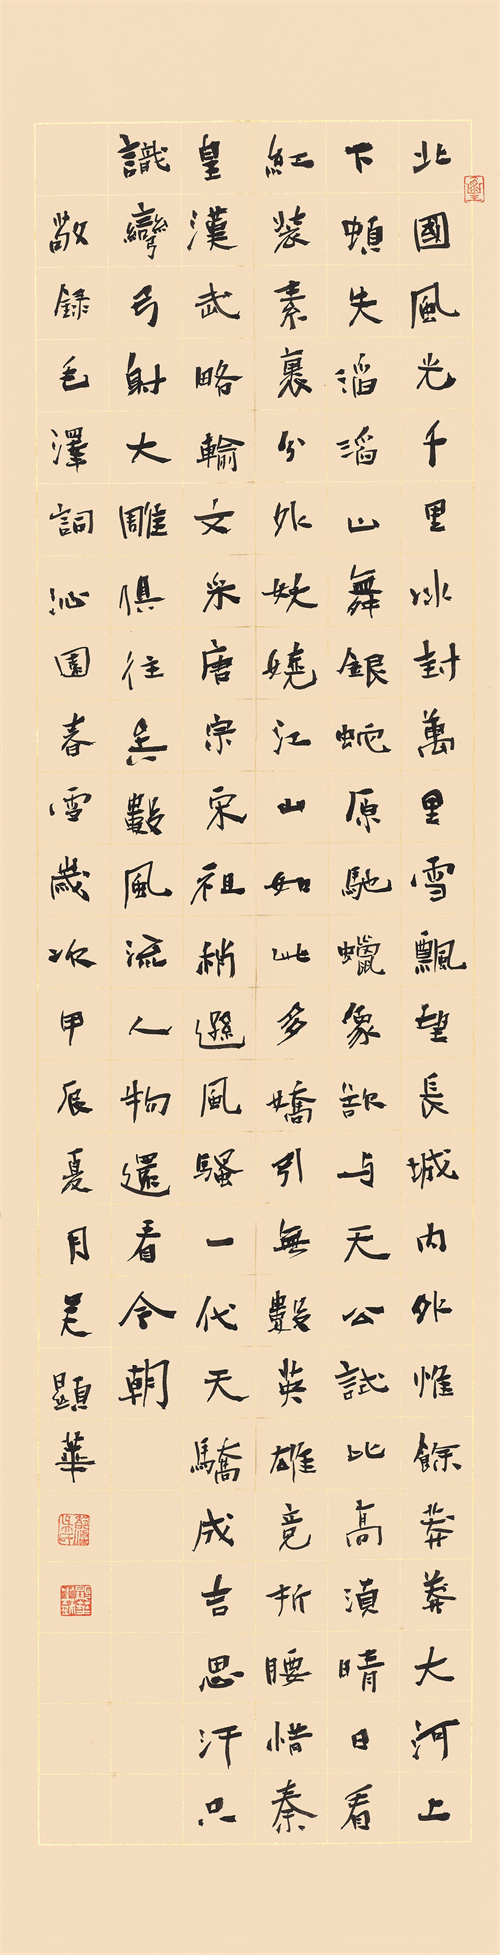 北國風光千里冰封萬里雪飄望長城内外惟餘莽莽大河上
下頓失滔滔山舞銀蛇原馳蠟象欲与天公試比高須晴日看
紅裝素裹分外妖嬈江山如此多嬌引無數英雄竞折腰惜秦
皇漢武略輸文采唐宗宋祖稍遜風騷一代天驕成吉思汗只
識彎弓射大雕俱往矣數風流人物還看今朝
敬録毛澤詞沁園春雪歲次甲辰夏月顯華